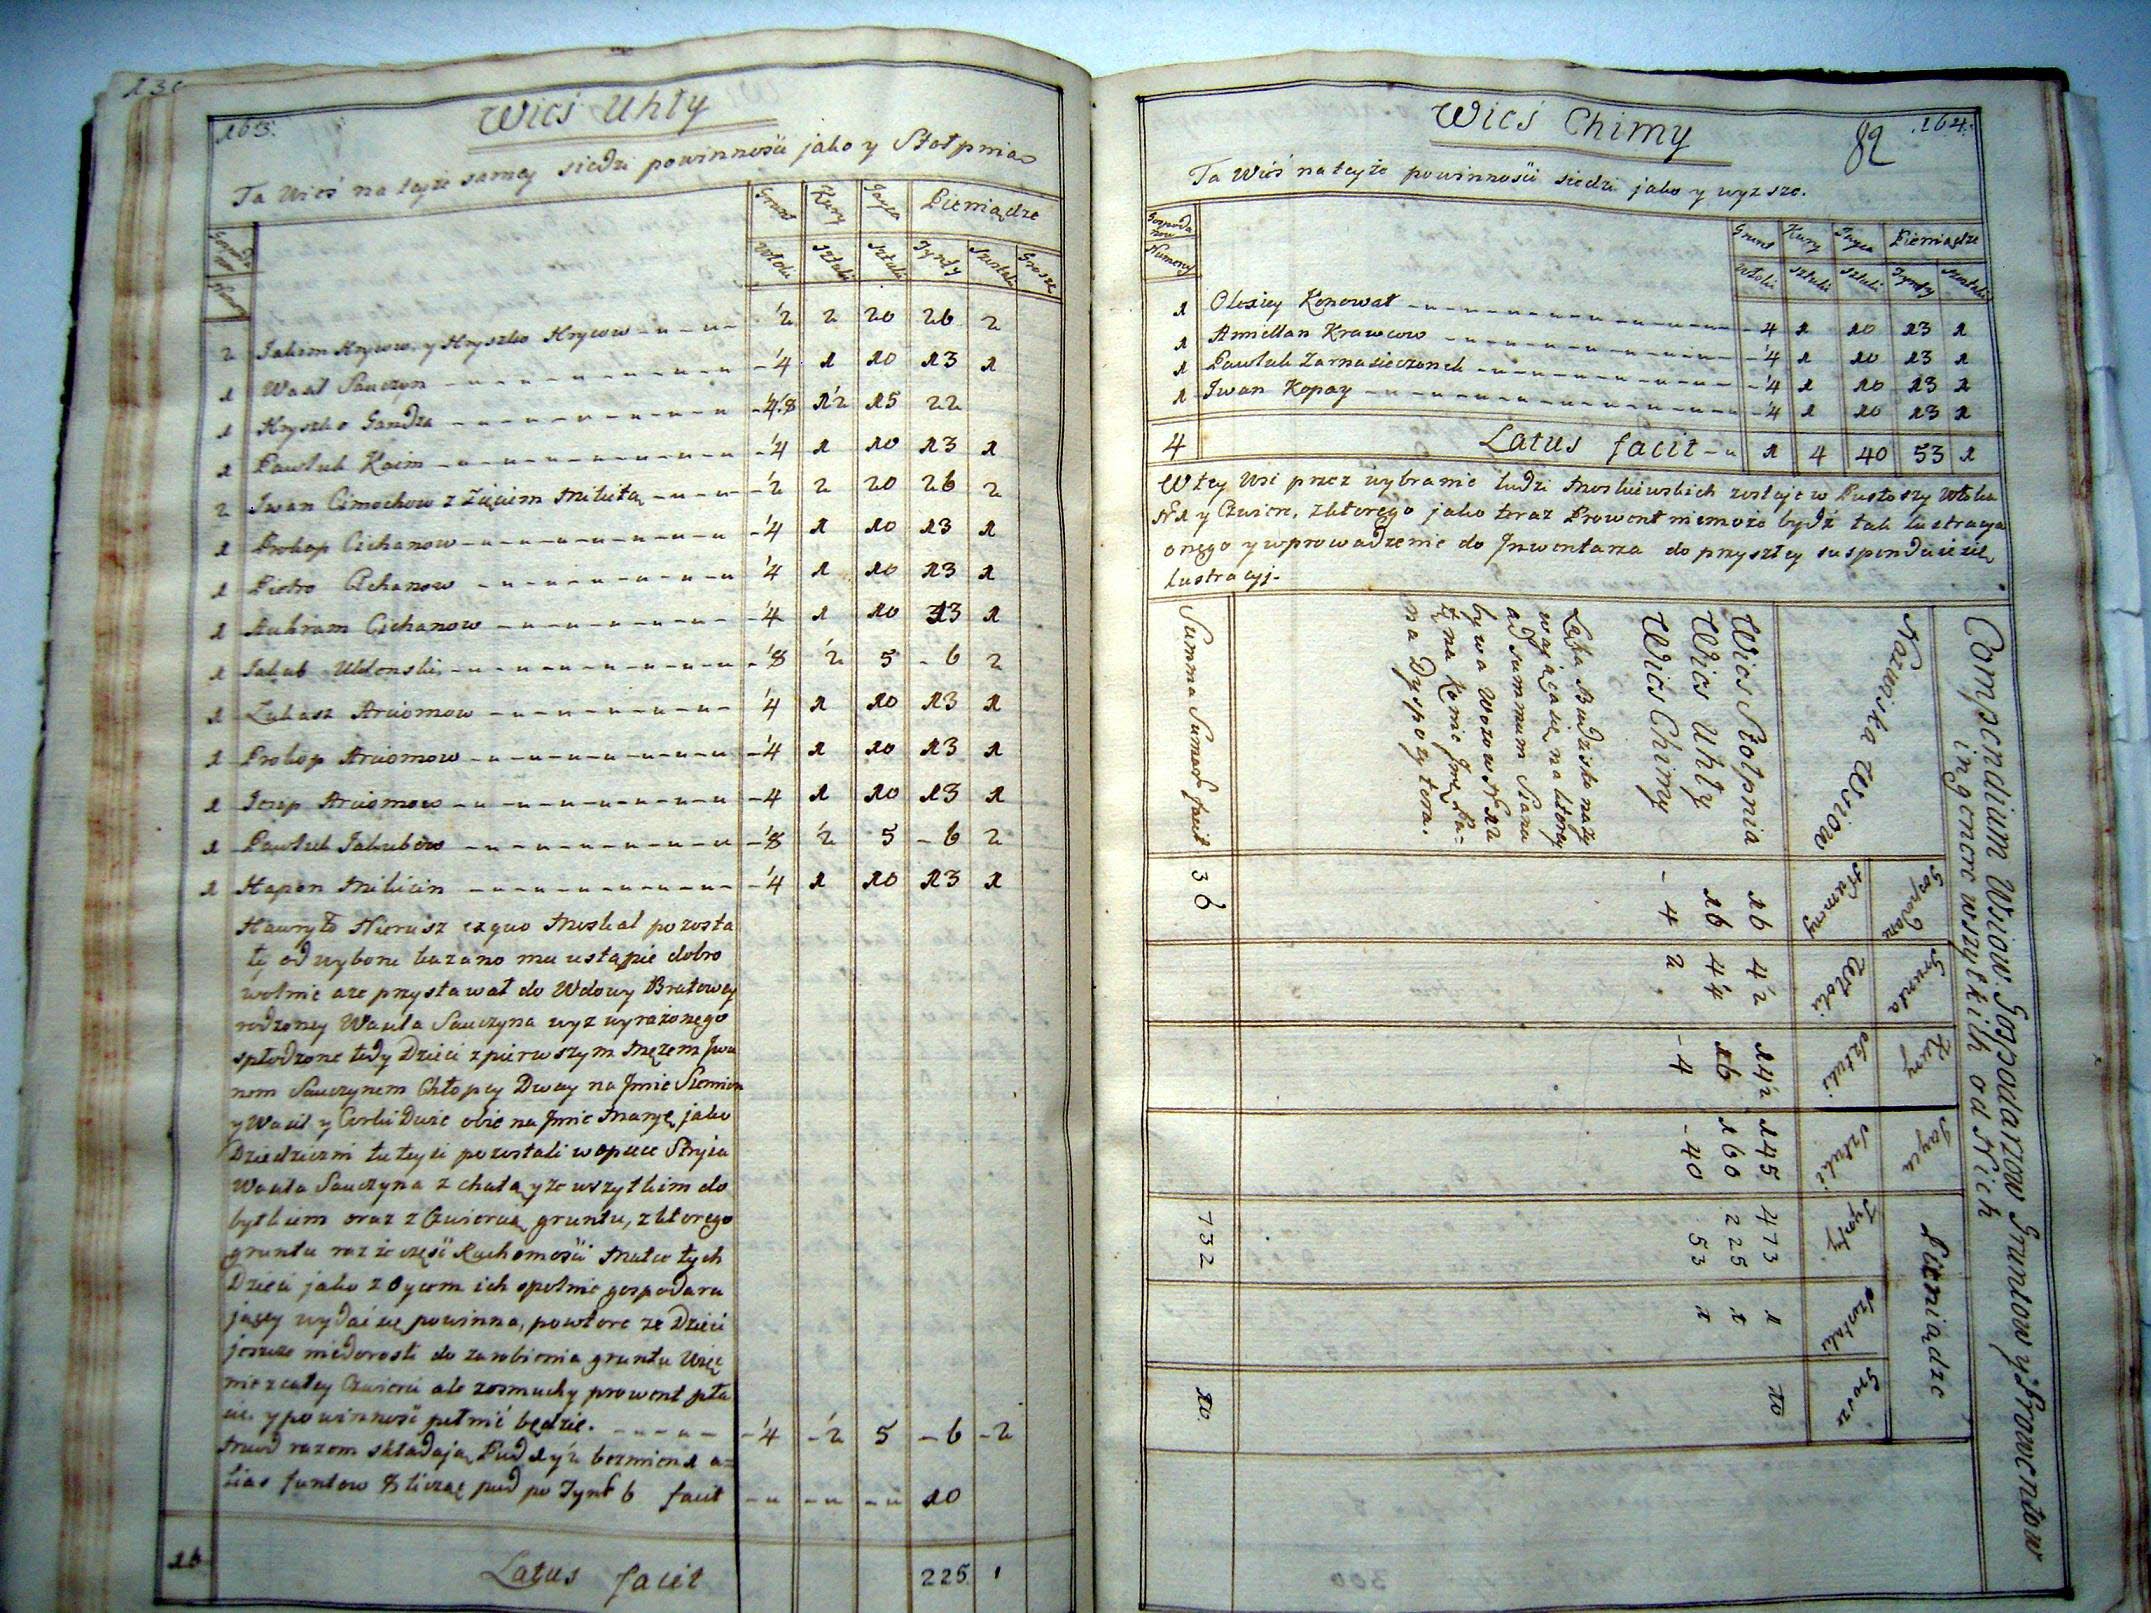 163.
Wieś Uhły
Ta Wieś na teyże samey siedzi powinności jako y Stołpnia
Grunt Kury Jayca Pieniądze
Włoki sztuki sztuki Tynfy Szostaki Grosze
2 Jakim Hrycow, y Hryszko Hrycow ½ 2 20 26 2
1 Wasil Sauczyn ¼ 1 10 13 1
1 Hryszko Gandza 1½ 15 22
1 Pawluk Kaim ¼ 1 10 13 1
2 Iwan Cimochow z Zięciem Mikitą ½ 2 20 26 2
1 Prokop Cichanow ¼ 1 10 13 1
1 Pietro Cichanow ¼ 1 10 13 1
1 Auhram Cichanow ¼ 1 10 13 1
1 Jakub ⅛ ½ 5 6 2
1 Łukasz Arciomow ¼ 1 10 13 1
1 Prokop Arciomow ¼ 1 10 13 1
1 Jozep Arciomow ¼ 1 10 13 1
1 Pawluk Jakubow ⅛ ½ 5 6 2
1 Hapon Mikicin ¼ 1 10 13 1
Hauryło Nierusz ex quo Moskal pozosta
ły od wyboru kazano mu ustąpić dobro
wolnie aże przystawał do Wdowy Bratowey
rodzoney Wasila Sauczyna wyz wyrazonego
spłodzone tedy Dzieci z pierwszym Mężem Iwa
nem Sauczynem Chłopcy Dway na Jmie Siemion
y Wasil y Corki Dwie obie na Jmie Maryę, jako
Dziedziczni tuteysi pozostali w opiece Stryia
Wasila Sauczyna z chatą y ze wszytkim do
bytkiem oraz z Cwiercią gruntu, z ktorego
gruntu raz że częsć Ruchomości Matce tych
Dzieci jako z Oycem ich spolnie gospodaru
jącey wydać się powinna, powtore że Dzieci
jeszcze niedorosłi do zarobienia gruntu Więc
nie z całey Cwierci ale zosmuchy prowent pła
cic y powinność pełnić będzie. ¼ ½ 5 6 2
Miod razem składają Pud 1 y ½ bezmien 1 a-
lias funtow 8 licząc pud po Tynf 6 facit 10
16 Latus facit 225. 1
Wieś Chimy
82
.164.
Ta Wieś na teyże powinności siedzi jako y wyższe.
Gospoda
row
Numery
Grunt Kury Jayca Pieniądze
Włoki sztuki sztuki Tynfy Szostaki
1 Olexiey Konował ¼ 1 10 13 1
1 Amiellan Krawcow ¼ 1 10 13 1
1 Pawluk Zarnasieczonek ¼ 1 10 13 1
1 Iwan Kopay ¼ 1 10 13 1
4 Latus facit 1 4 40 53 1
W tey Wsi przez wybranie ludzi Moskiewskich zostaje w Pustoszy Włoka
N 1 y Cwierc, z ktorego jako teraz Prowent niemoże bydź tak lustracya
onego y wprowadzenie do Inwentarza do przyszłey suspenduie się
lustracyj.
Compendium Wsiow. Gospodarzow Gruntow y Prowentow
in genere wszytkich od Nich
Nazwiska Wsiow
Gospodarze Grunta Kury Jayca Pieniądze
Numery Włoki sztuki sztuki Tynfy Szostaki Grosze
Wieś Stołpnia 16 4½ 14½ 145 473 1 10
Wieś Uhły 16 4¼ 16 160 225 1
Wieś Chimy 4 2 4 40 53 1
Łąka Budzisko nazy
wająca się na ktorey
ad summum Siana
bywa Wozow N 12
ta na Konie
na Dyspozytora.
Summa Summar facit 36 732 10